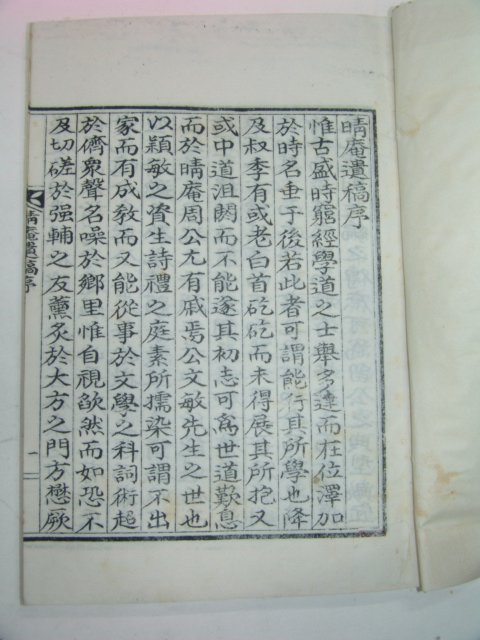 晴庵遺稿序
惟古盛時窮經學道之士擧多達而在位澤加
於時名垂于後若此者可謂能行其所學也降
及叔季有或老白首矻矻而未得展其所抱又
或中道沮閼而不能遂其初志可爲世道歎息
而於晴庵周公尤有戚焉公文敏先生之世也
以穎敏之資生詩禮之庭素所擩染可謂不出
家而有成敎而又能從事於文學之科詞術超
於儕衆聲名噪於鄕里惟自視欿然而如恐不
及切磋於强輔之友薰炙於大方之門方懋厥
晴庵遺稿序
一